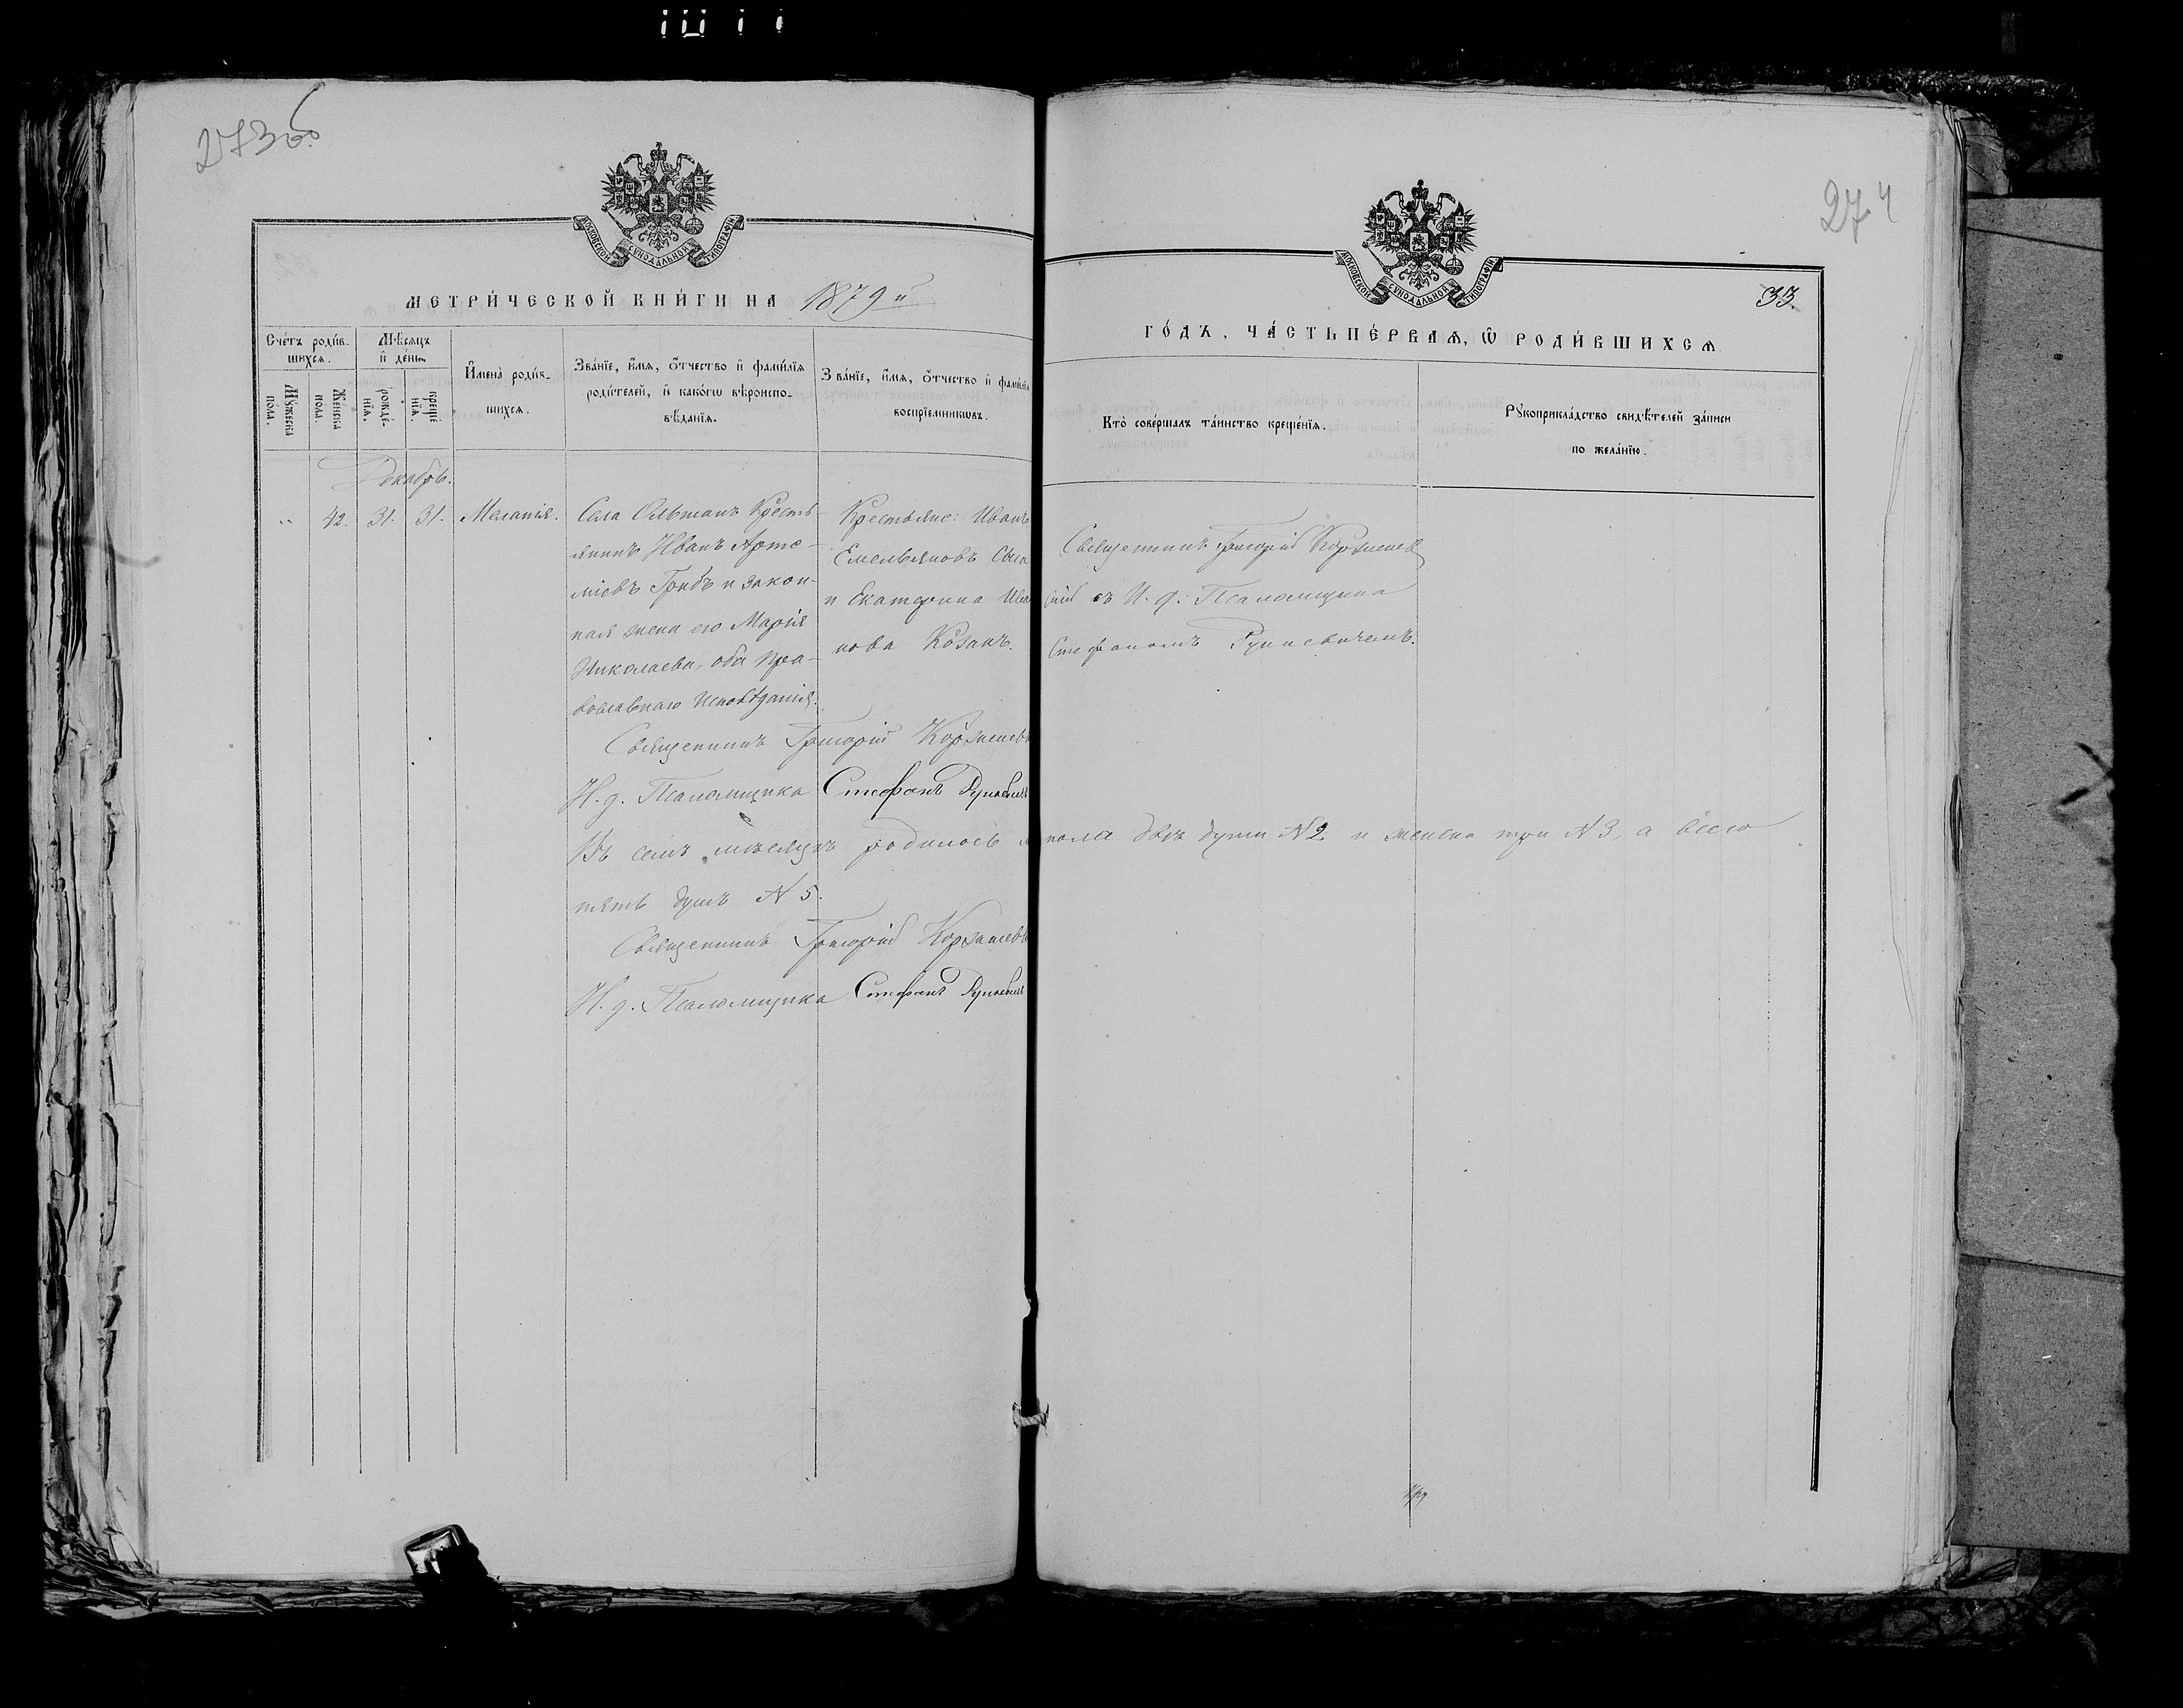 273 об
МОСКОВСКОЙ СѴНОДАЛЬНОЙ ТИПОГРАФІИ
МЕТРИ́ЧЕСКОЙ КНИ́ГИ НА 1879 й
Сче́тъ роди́вшихсѧ.
Мꙋ́жеска по́ла.
Же́нска по́ла.
Мѣ́сѧцъ и҆ де́нь.
рожде́нїѧ.
креще́нїѧ.
И҆мена̀ роди́вшихсѧ.
Зва́нїе, и҆́мѧ, ѻ҆́тчество и҆ фами́лїѧ
роди́телей, и҆ како́гѡ вѣроиспо-
вѣ́данїѧ.
Зва́нїе, и҆́мѧ, ѻ҆́тчество и҆ фами́лїѧ
воспрїе́мникѡвъ.
Декабрь.
" 42. 31. 31. Меланія.
Села Ольтанъ Кресть-
янинъ Иванъ Арте-
міевъ Грибъ и закон-
ная жена его Марія
Николаева, оба пра-
вославнаго исповѣданія.
Крестьяне: Иванъ
Емельяновъ
и Екатерина Ива
нова Козакъ.
Священникъ Григорій
И. д. Псаломщика Стефанъ
Въ семъ мѣсяцѣ родилось
пять душъ N 5.
Священникъ Григорій
И. д. Псаломщика Стефанъ
274
МОСКОВСКОЙ СѴНОДАЛЬНОЙ ТИПОГРАФІИ
33.
ГО́ДЪ, ЧА́СТЬ ПЕ́РВАѦ, Ѡ҆ РОДИ́ВШИХСѦ
Кто̀ соверша́лъ та́инство креще́нїѧ.
Рꙋкоприкла́дство свидѣ́телей за́писи
по жела́нїю.
Священникъ Григорій
съ И. д. Псаломщика
Стефаномъ
пола двѣ души N 2 и женска три N 3, а всего